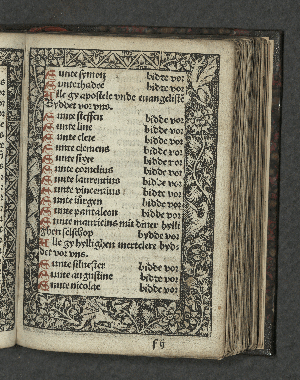 Sunte symon bidde vor
Sunte thadee bidde vor
Alle gy apostele vnde euangeliste
Byddet vor vns.
Sunte steffen bidde vor
Sunte line bidde vor
Sunte clete bidde vor
Sunte clemens bidde vor
Sunte sixte bidde vor
Sunte cornelius bidde vor
Sunte laurentius bidde vor
Sunte vincentius bidde vor
Sunte iürgen bidde vor
Sunte pantaleon bidde vor
Sunte mauricius mit diner hylli
gen selschop bydde vor
Alle gy hyllighen mertelere byd
det vor vns.
Sunte siluester bidde vor
Sunte augustine bidde vor
Sunte nicolae bidde vor
f ij